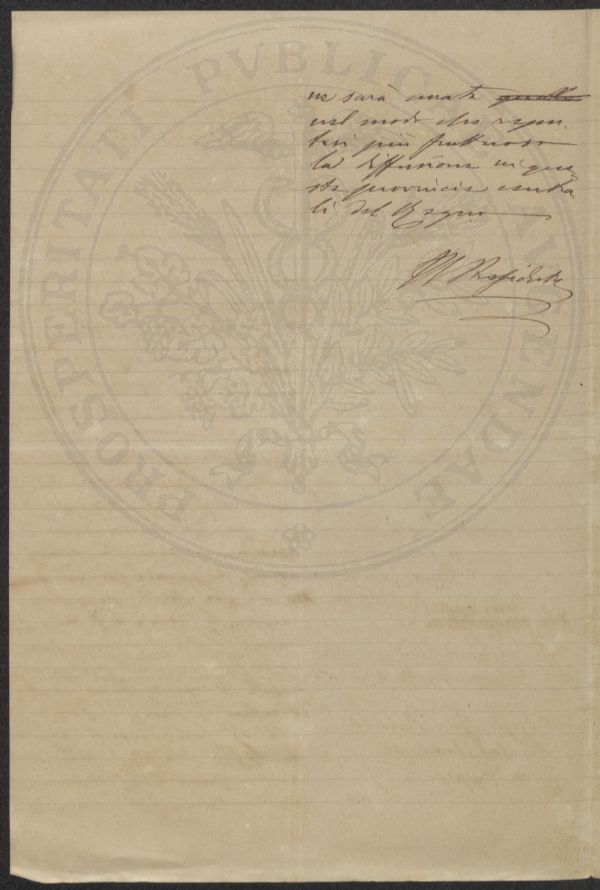 ne sarà curata
nel modo che repu-
tasi più fruttuoso
la diffusione in que-
ste provincie centra-
li del Regno
Il Presidente
PROSPERITATI PVBLICAE AVGENDAE